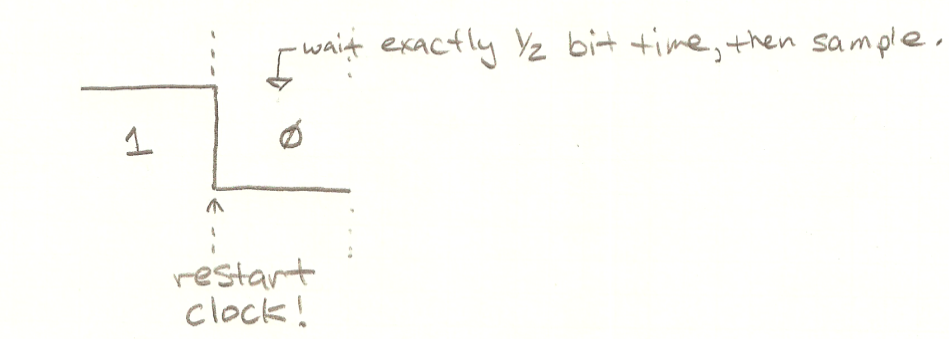 wait exactly 1/2 bit time, then sample.
1
0
restart
clock!